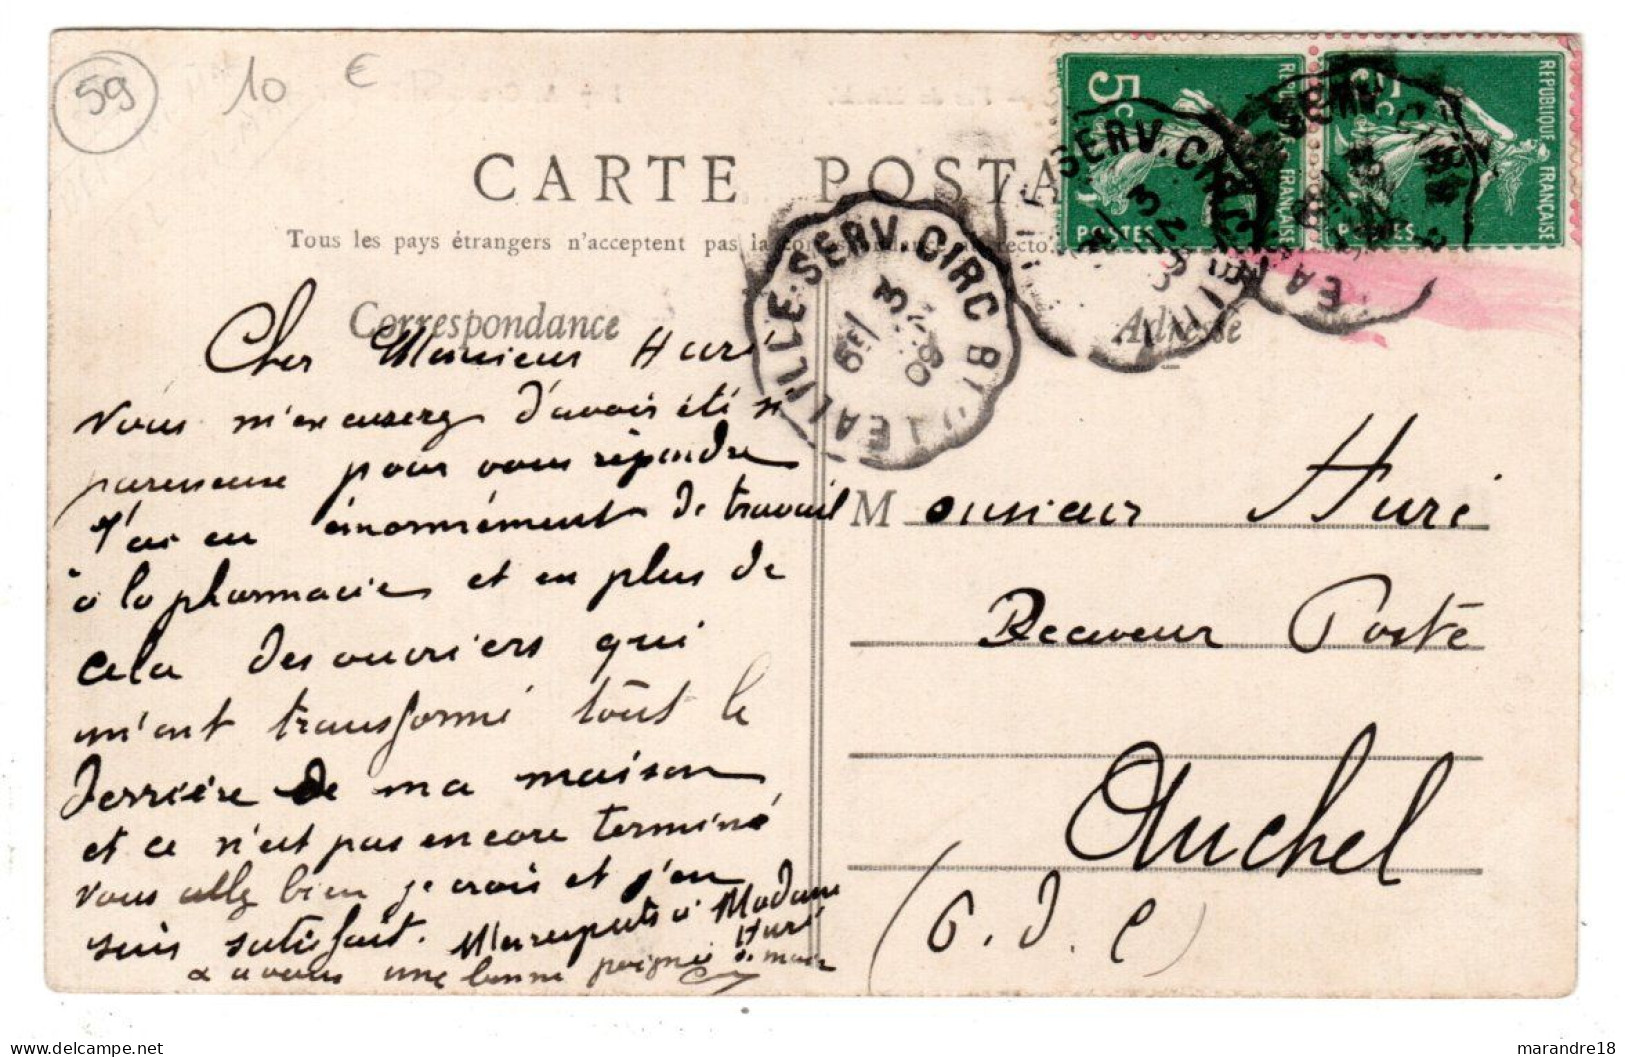 59
10 €
CARTE POSTA
Tous les pays étrangers n'acceptent pas la correspondance au recto.
5c
POSTES
REPUBLIQUE FRANÇAISE
5c
POSTES
REPUBLIQUE FRANÇAISE
SERV. CIRC
3
09
SERV. CIRC
Correspondance
Adresse
Cher Monsieur Huré
Vous m'excuserez d'avoir été si
paresseuse pour vous répondre
J'ai eu énormément de travail
à la pharmacie et en plus de
cela des ouvriers qui
m'ont transformé tout le
derrière de ma maison
et ce n'est pas encore terminé
Vous allez bien je crois et j'en
suis satisfait. Mes respects à Madame
Huré
& à vous une bonne poignée de main
Monsieur Huré
Receveur Poste
Auchel
(P. d. C)
marandre18
delcampe.net